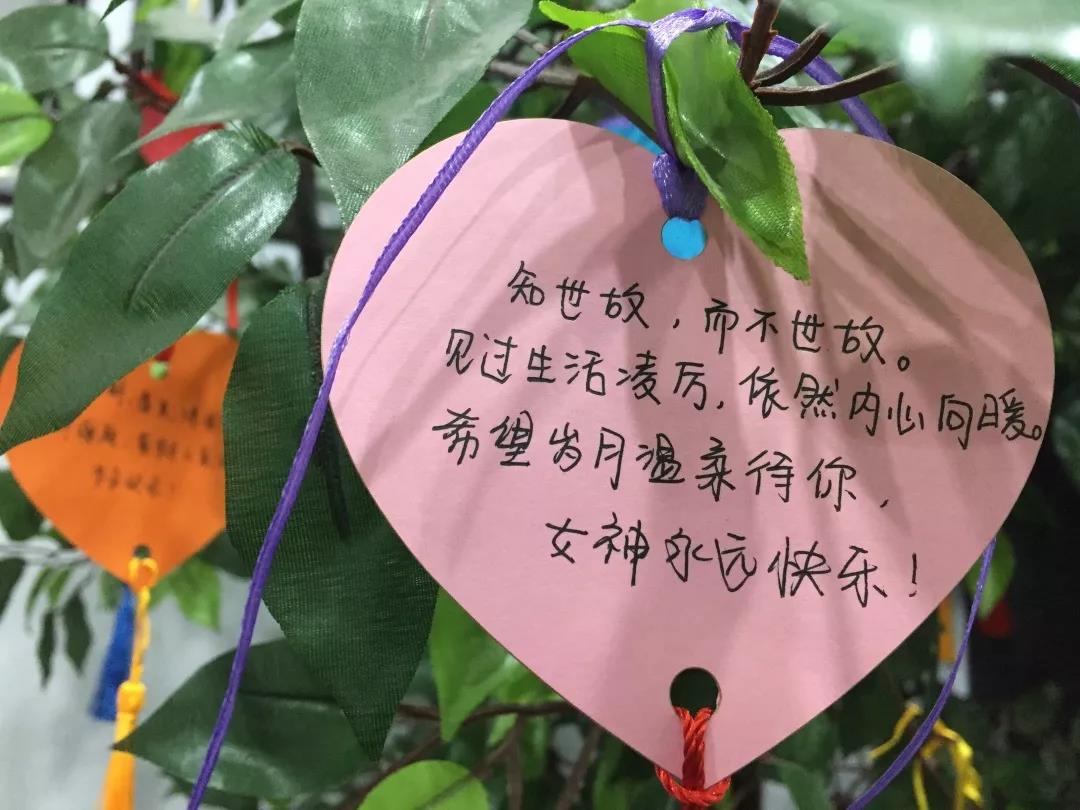 知世故，而不世故。
见过生活凌厉，依然内心向暖。
希望岁月温柔待你，
女神永远快乐！